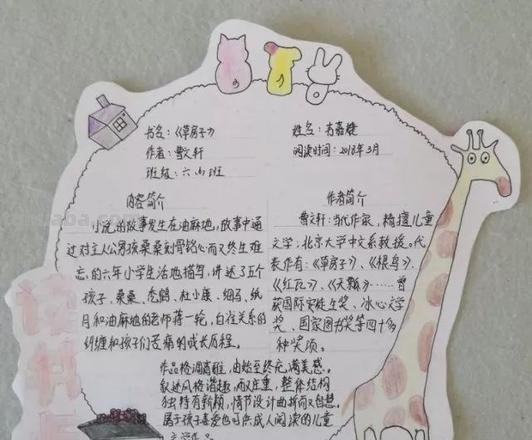 书名:《草房子》
作者:曹文轩
班级:六(4)班
姓名:
阅读时间:2018年3月
内容简介
小说的故事发生在油麻地,故事中通
过对主人公男孩桑桑刻骨铭心而又终生难
忘的六年小学生活地描写,讲述了五个
孩子,桑桑、秃鹤、杜小康、细马、纸
月和油麻地的老师蒋一轮,白雀关系的
纠缠和孩子们苦痛的成长历程。
作者简介
曹文轩:当代作家,精擅儿童
文学,北京大学中文系教授。代
表作有:《草房子》、《根鸟》、
《红瓦》、《天瓢》……曾
获国际安徒生奖、冰心文学
奖、国家图书奖等四十多
种奖项。
作品格调高雅,由始至终充满美感。
叙述风格谐趣,而又庄重,整体结构
独特有新颖,情节设计曲折而又智慧。
属于孩子喜爱也可供成人阅读的儿童
文学作品。